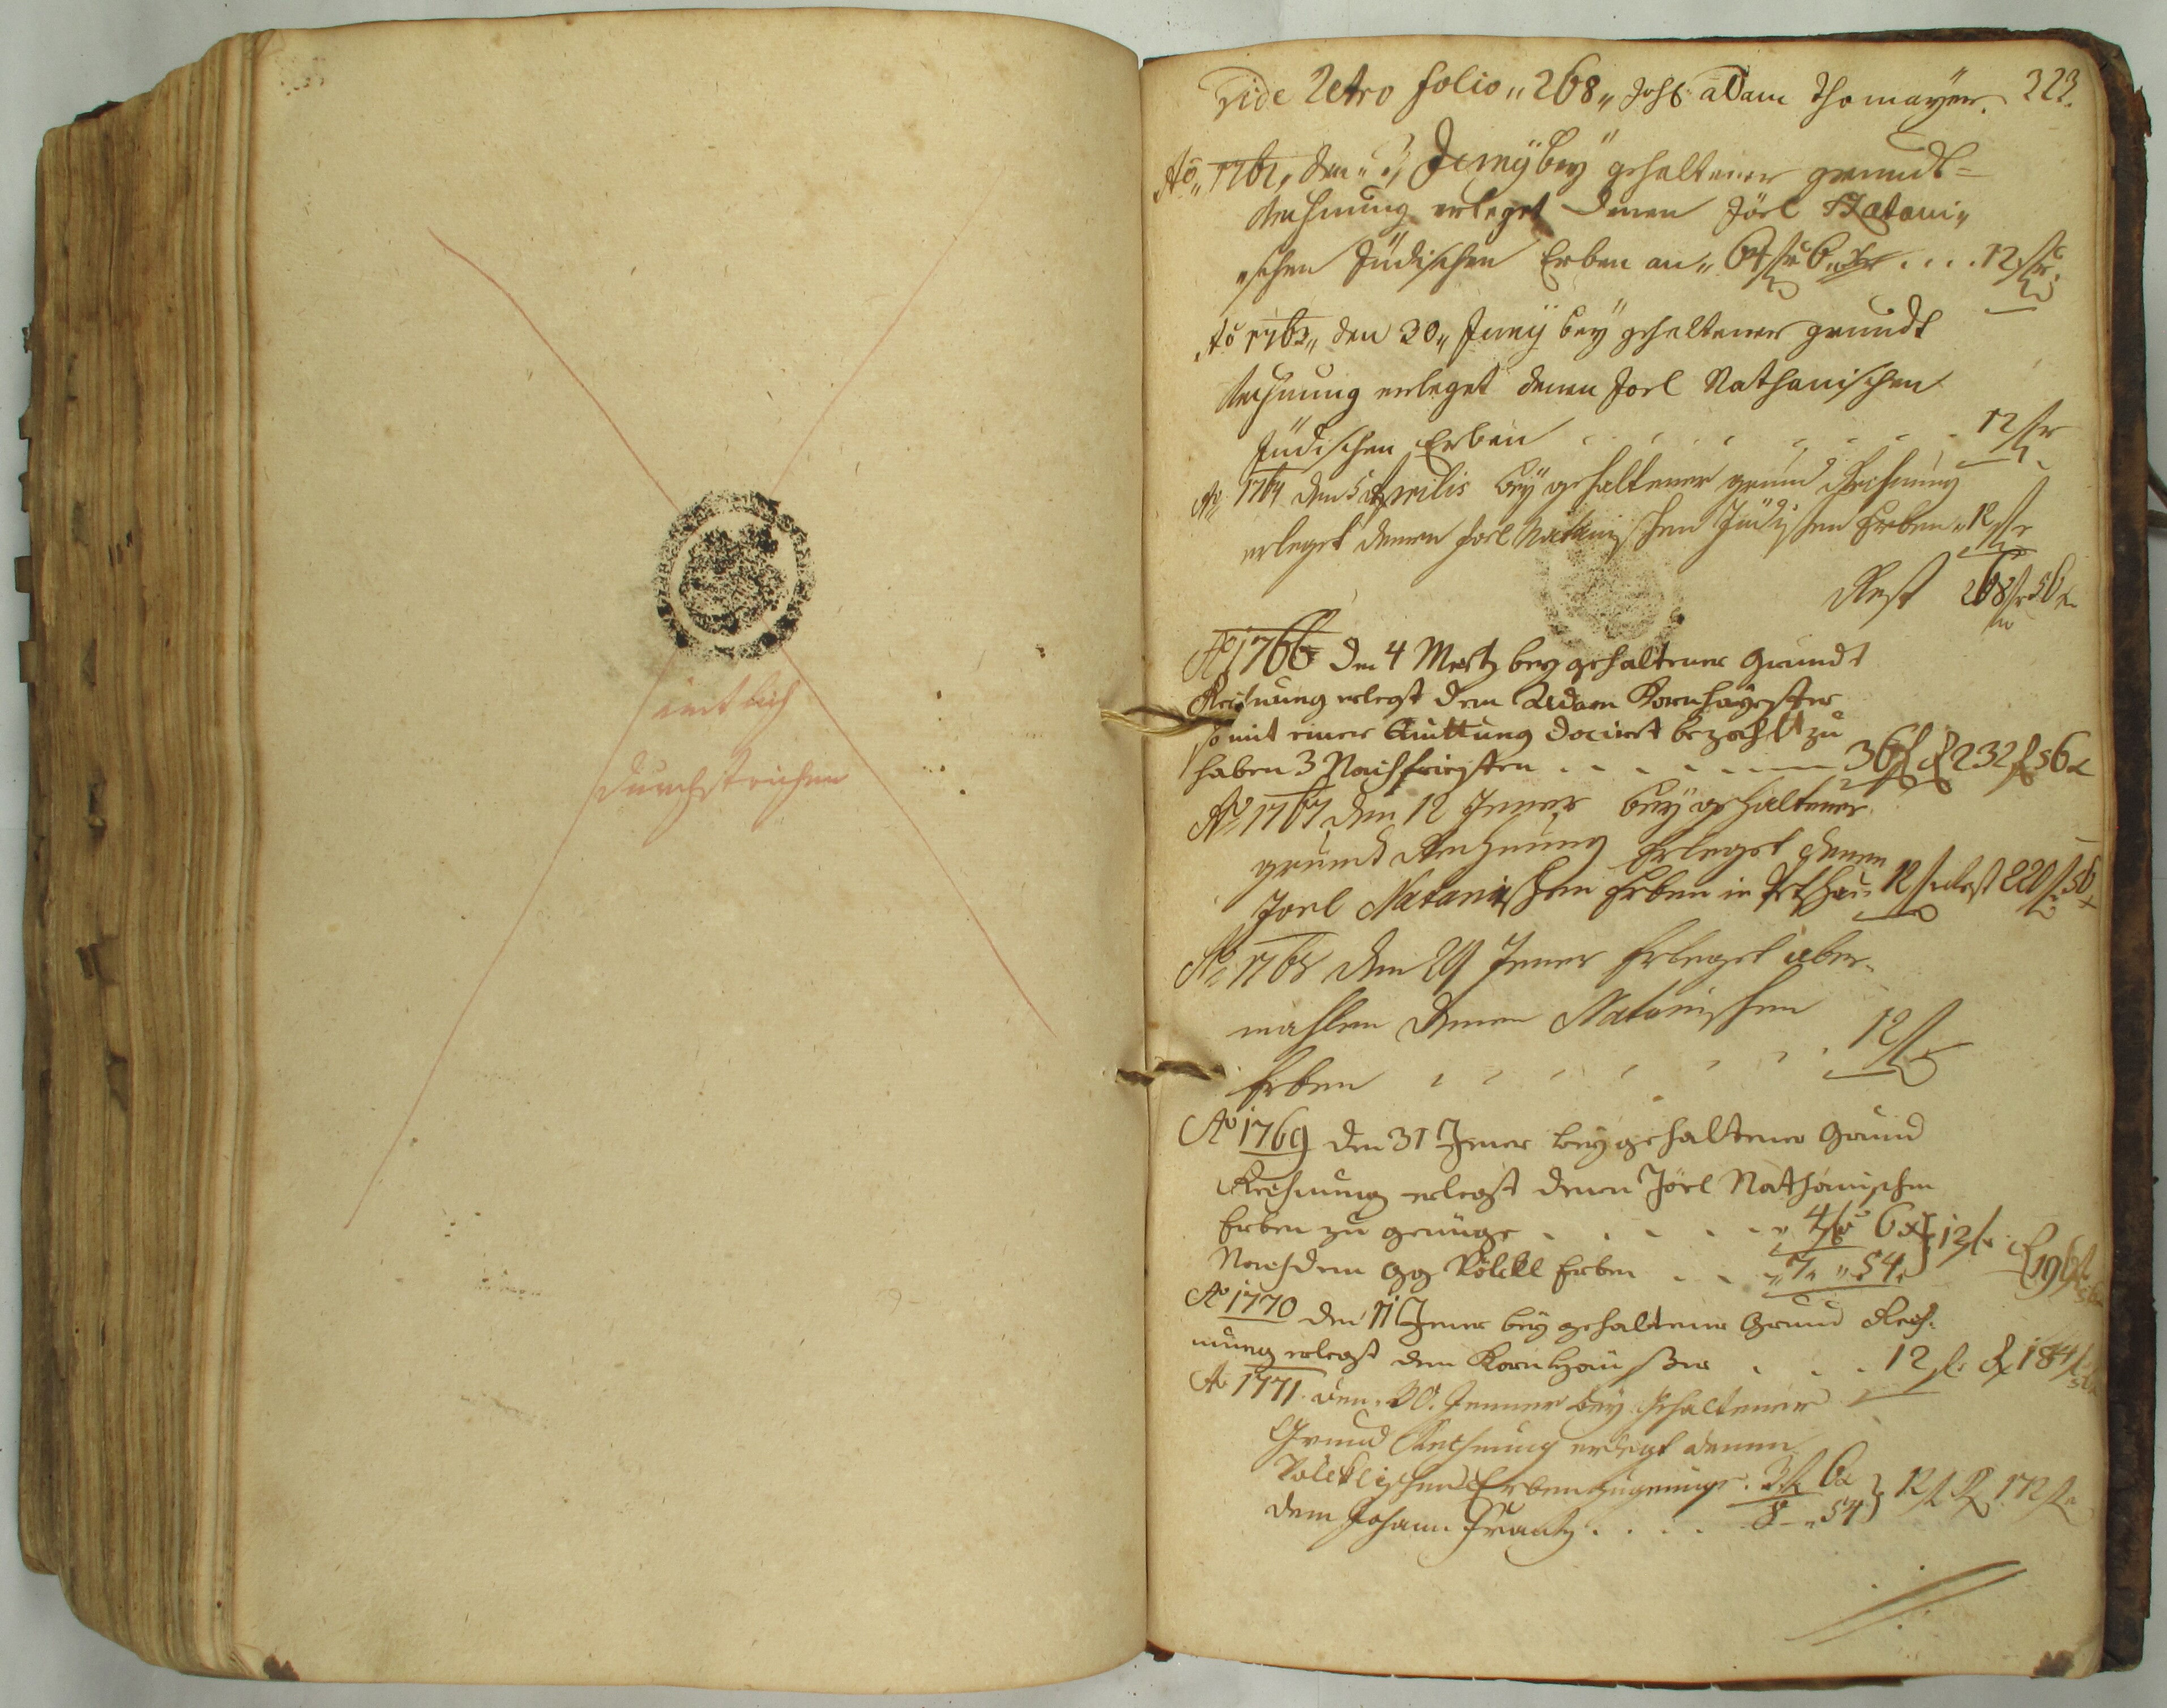 amtlich
durchstrichen
Vide Retro folio „ 268 „ Joh: adam Thomayer. 323.
Aõ „ 1762, den „ 3, Juny bey gehaltener grundt=
Rechnung erleget denen Jöel Natani„
„schen Jüdischen Erben an „ 64 fl 6 xr .... 12 fl
Aõ 1763 „ den 30 „ Juny bey gehaltener grundt
Rechnung erleget denen Joel Nathanischen
Jüdischen Erben . . . . . . . 12 fl
Aõ 1764 den 5 Aprilis bey gehaltener grund Rechnung
erleget denen Joel Natanischen Jüdischen Erben „ 12 fl
Rest 268 fl 56 x
Aõ 1766 den 4 Mertz bey gehaltener Grundt
Rechnung erlegt dem Adam
so mit einer Quittung docirt bezahlt zu
haben 3 Nachfristen . . . . . 36 f R 232 f 56 x
Aõ 1767 den 12 Jener bey gehaltener
grund Rechnung Erleget denen
Joel Natanischen Erben in 12 f Rest 220 f 56 x
Aõ 1768 den 29 Jener Erleget aber„
mahlen denen Natanischen
Erben . . . . . . . 12 f
Aõ 1769 den 31 Jener bey gehaltener Grund
Rechnung erlegt denen Jöel Nathanischen
Erben zu genüge . . . . . „ 4 f 6 x } 12 f. R 196 f
Nachdem Gg Pölckl Erben . . . „ 7 „ 54 „ 56 x
Aõ 1770 den 11 Jener bey gehaltener Grund Rech„
nung erlegt dem . . . 12 f. R 184 f
Aõ 1771. den. 30. Jenner bey Gehaltener
Grund Rechnung erlegt denen
Pölcklischen Erben zugenüge . 3 f 6 x } 12 f R 172 f
dem Johann Frantz . . . . . 8 „ 54